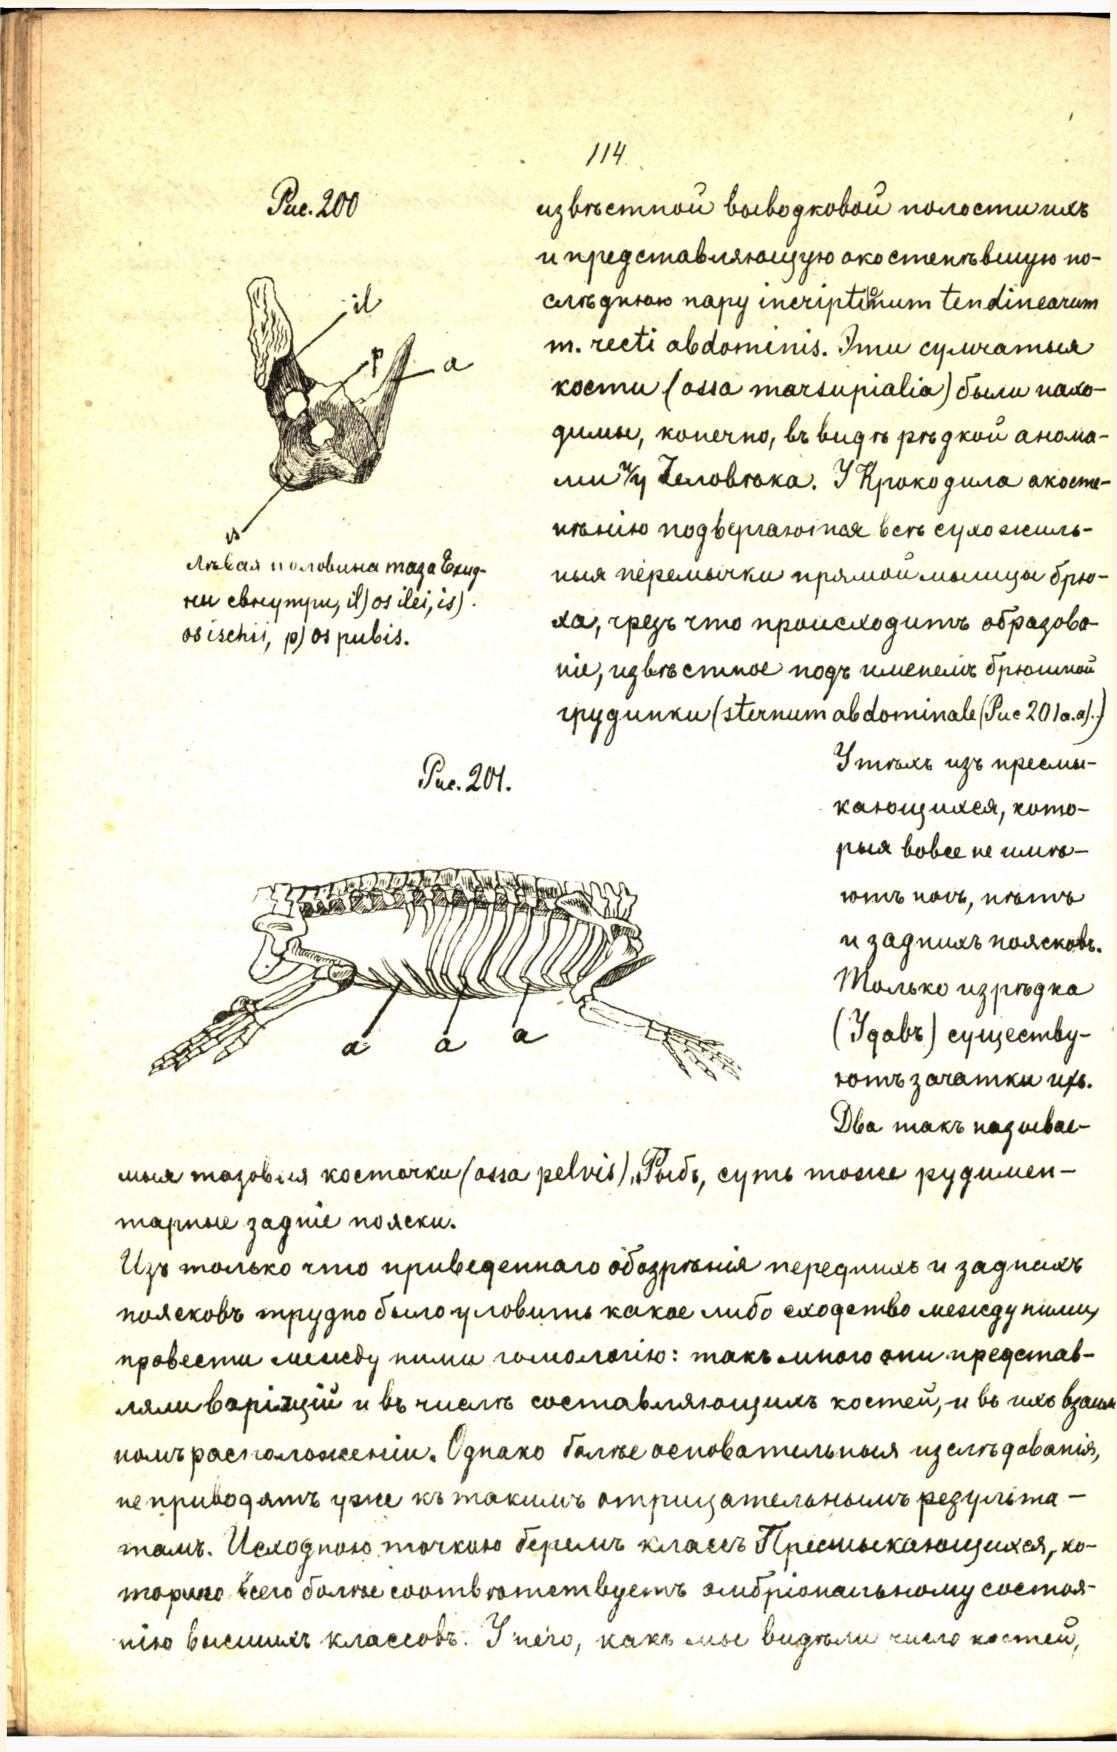 114
Рис. 200
il
p
a
is
Лѣвая половина таза Ехид-
ны свнутри, il) os ilei, is)
os ischii, p) os pubis.
извѣстной выводковой полости ихъ
и представляющую окостенѣвшую по-
слѣднюю пару incriptionum tendinearum
m. recti abdominis. Эти сумчатыя
кости (ossa marsupialia) были нахо-
димы, конечно, въ видѣ рѣдкой анома-
лии и у Человѣка. У Крокодила окосте-
нѣнію подвергаются всѣ сухожиль-
ныя перемычки прямой мышцы брю-
ха, чрезъ что происходитъ образова-
ніе, извѣстное подъ именемъ брюшной
грудинки (sternum abdominale (Рис 201 a.a).)
Рис. 201.
a a a
У тѣхъ изъ пресмы-
кающихся, кото-
рыя вовсе не имѣ-
ютъ ногъ, нѣтъ
и заднихъ поясковъ.
Только изрѣдка
(Удавъ) существу-
ютъ зачатки ихъ.
Два такъ называе-
мыя тазовыя косточки (ossa pelvis) Рыбъ, суть тоже рудимен-
тарные задніе пояски.
Изъ только что приведеннаго обозрѣнія переднихъ и заднихъ
поясковъ трудно было уловить какое либо сходство между ними,
провести между ними гомологію: такъ много они представ-
ляли варіацій и въ числѣ составляющихъ костей, и въ ихъ взаим
номъ расположеніи. Однако болѣе основательныя изслѣдованія,
не приводятъ уже къ такимъ отрицательнымъ результа-
тамъ. Исходною точкою беремъ классъ Пресмыкающихся, ко-
торый всего болѣе соотвѣтствуетъ эмбріональному состоя-
нію высшихъ классовъ. У него, какъ мы видѣли число костей,